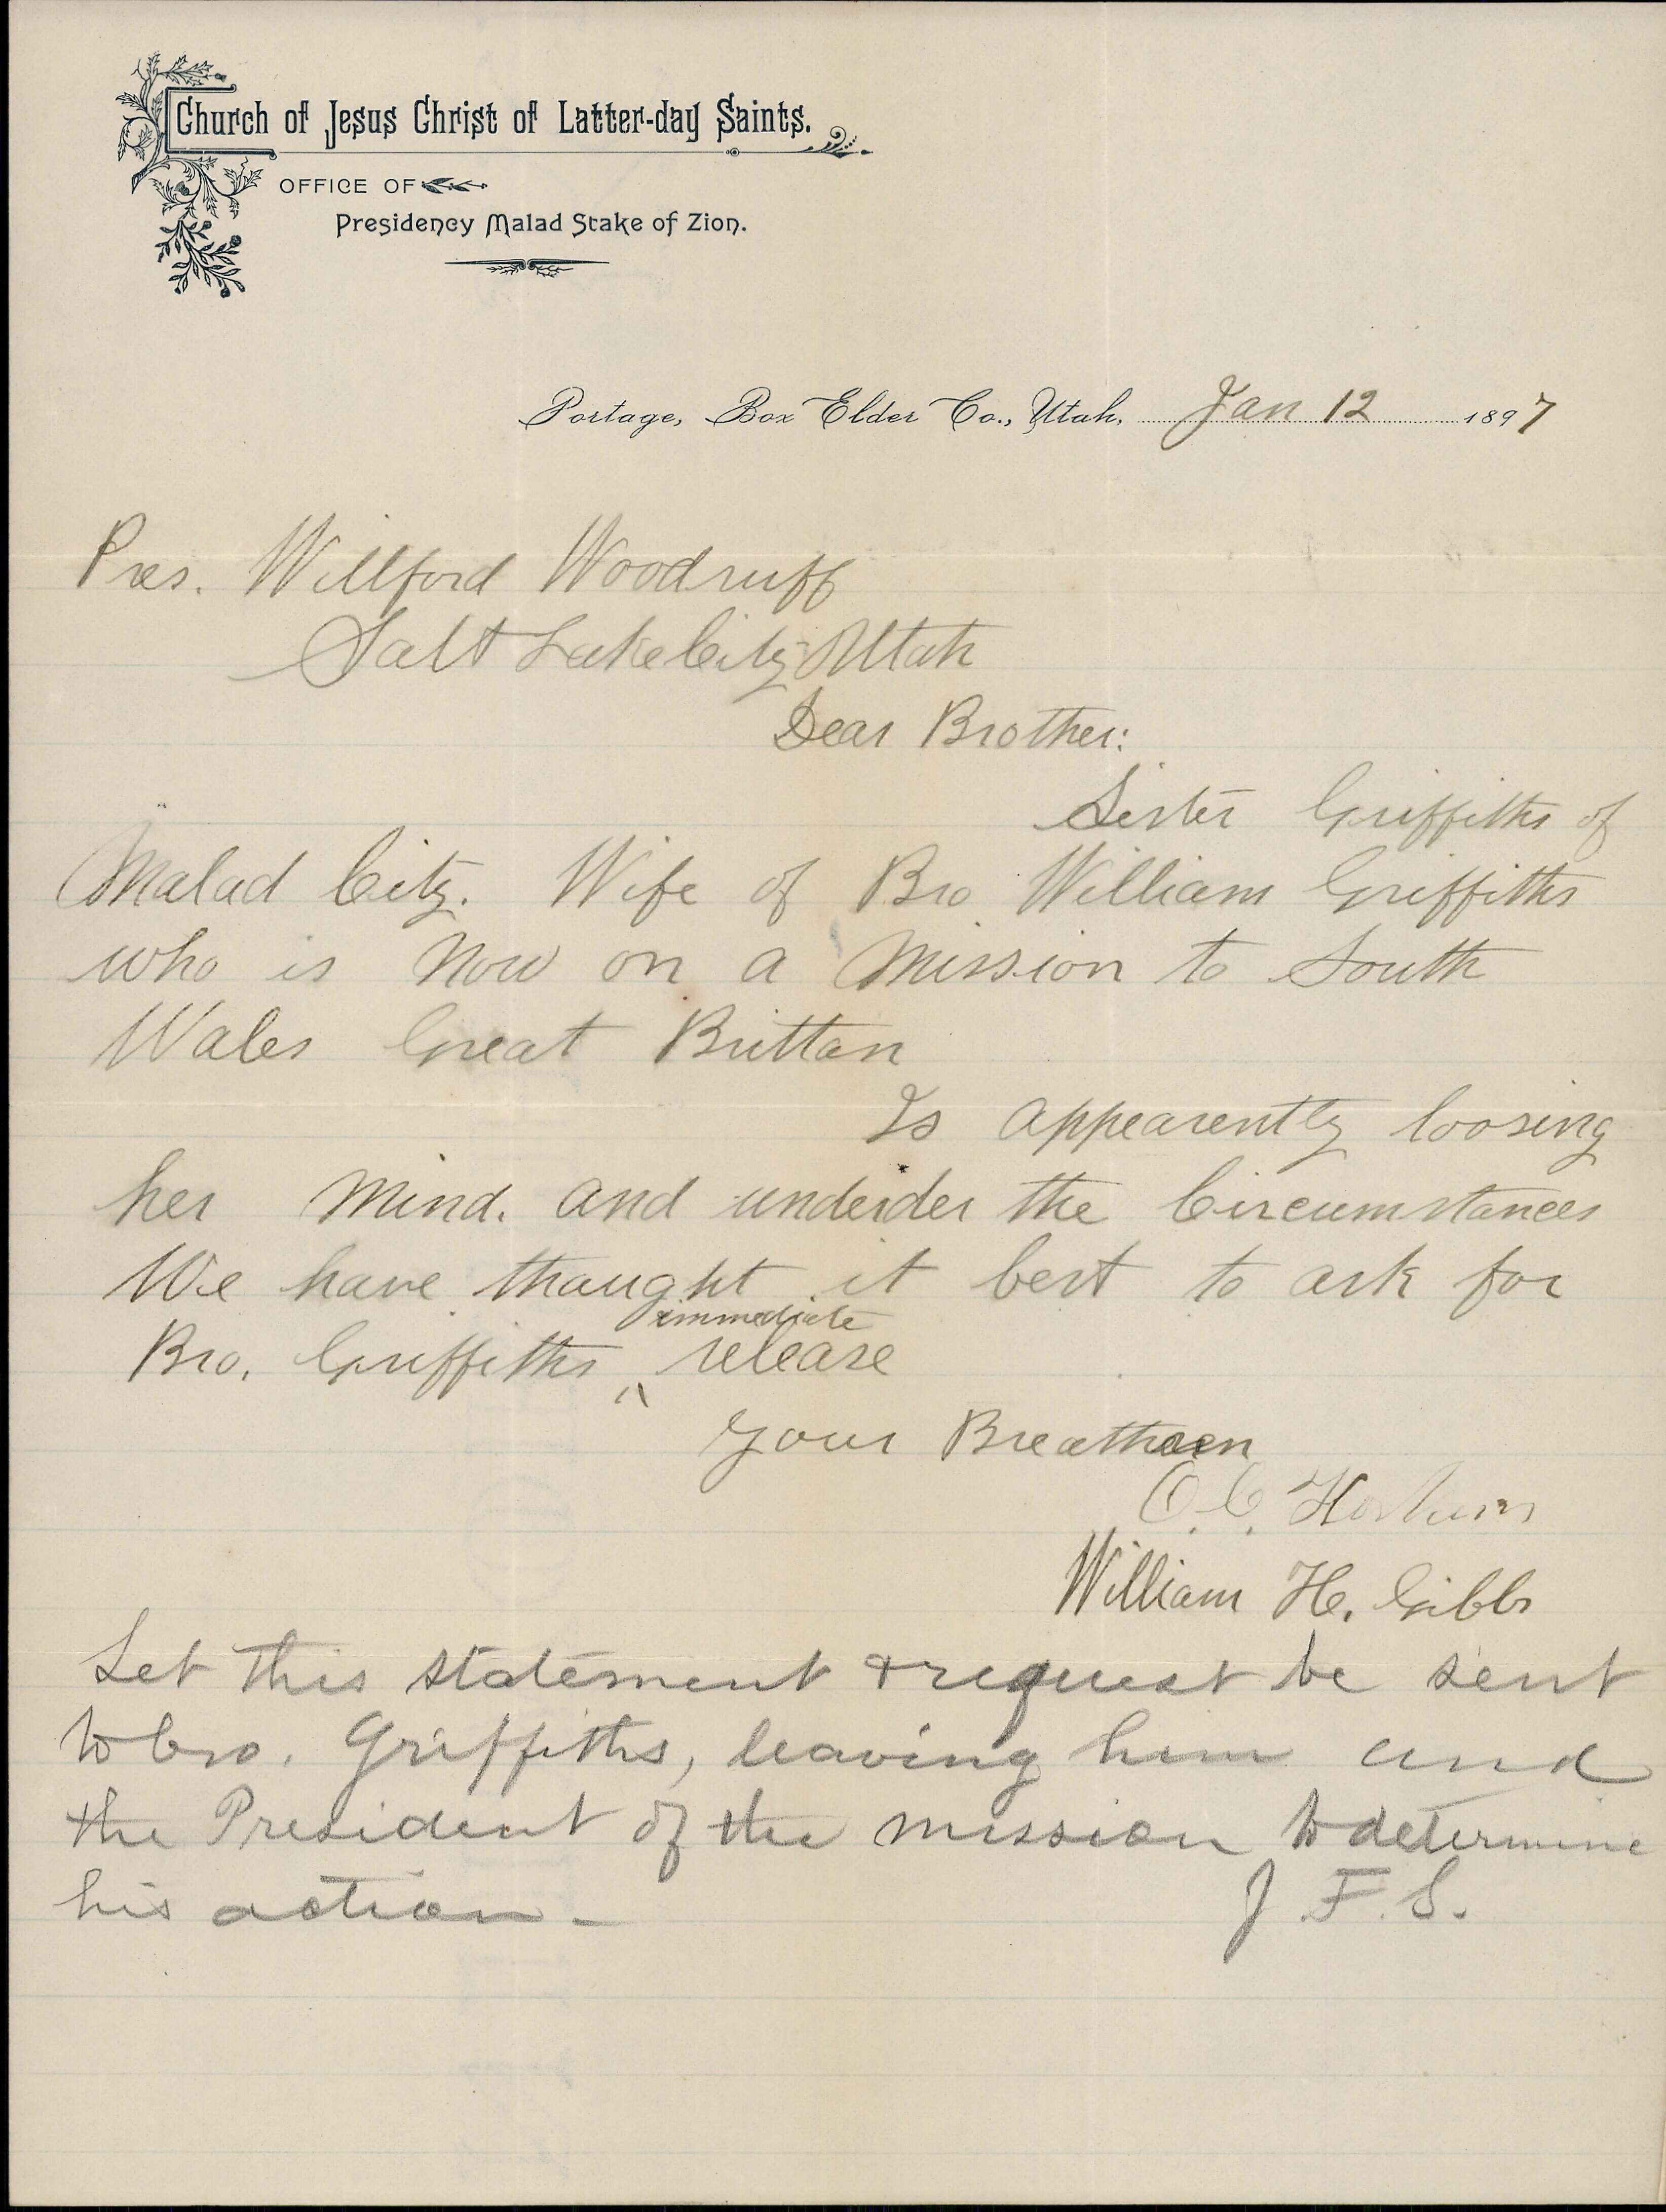 Church of Jesus Christ of Latter-day Saints.
OFFICE OF
Presidency Malad Stake of Zion.
Portage, Box Elder Co., Utah, Jan 12 1897
Pres. Willford Woodruff
Salt Lake City Utah
Dear Brother:
Sister Griffiths of
Malad City. Wife of Bro William Griffiths
who is now on a mission to South
Wales Great Brittan
Is appearently loosing
her mind. and underder the Circumstances
We have thaught it best to ask for
immediate
Bro. Griffiths ^ release
Your Breatheren
O. C. Hoskins
William H. Gibbs
Let this statement & request be sent
to bro. Griffiths, leaving him and
the President of the mission to determine
his action. -
J. F. S.